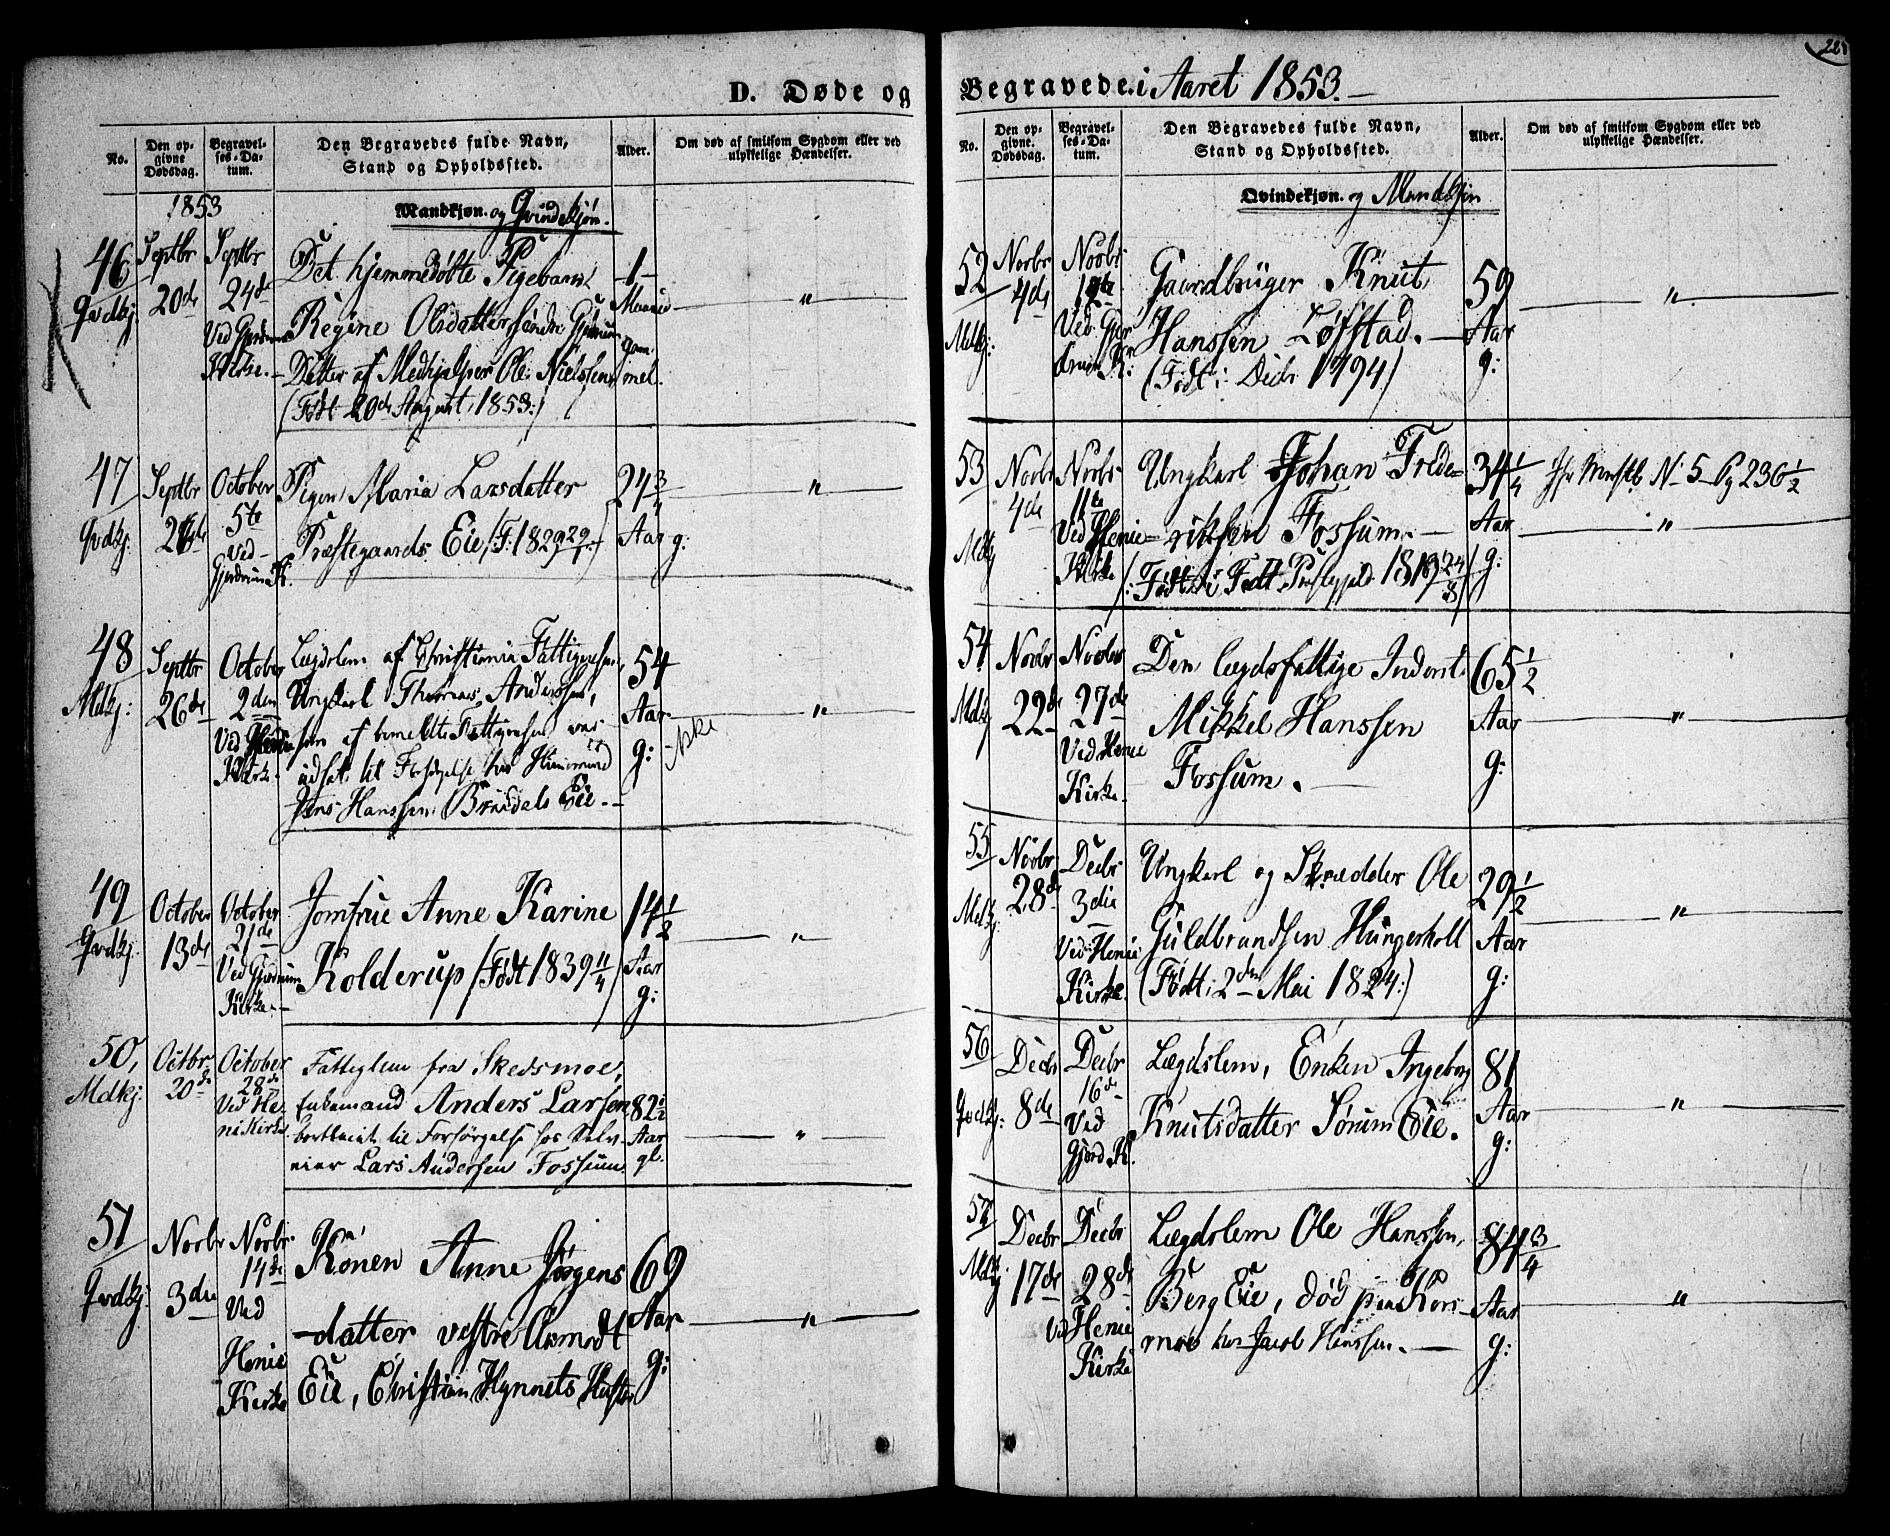 D. Døde og
No.
Den op-
givne
Dødsdag.
Begravel-
ses-Da-
tum.
Den Begravedes fulde Navn,
Stand og Opholdssted.
Alder.
Om død af smitsom Sygdom eller ved
ulykkelige Hændelser.
1853
Mandkjøn. og Qvindekjøn.
46
Qvdkj.
Septbr
20de
Septbr
24de
Ved Gjerdrum
Kirke.
Det hjemmedøbte Pigebarn
Regine Olsdatter søndre Gjerdrum
Datter af Medhjelper Ole Nielsen
(Født 20de August 1853:)
1
Maaned
gam-
mel.
"
47
Qvdkj:
Septbr
October
5te
Ved
Gjerdrum K.
Pigen Maria Larsdatter
Præstegaards Eie, (F. 1829
24 3/4
Aar g:
"
48
Mdkj:
Septbr
26de
October
2den
Ved
Kirke.
Lægdslem af Christiania Fattigvæsen,
Ungkarl Thomas Anderssen,
som af bemeldte Fattigvæsen var
udsat til Forsørgelse hos Huusmand
Jens Hanssen Brudals Eie.
54
Aar
g:
ikke
"
49
Qvdkj.
October
13de
October
21de
Ved Gjerdrum
Kirke.
Jomfrue Anne Karine
Kolderup (Født 1839 11/4)
14 1/2
Aar
g:
"
50,
Mdkj.
Octbr.
20de
October
28de
Ved He-
ni Kirke.
Fattiglem fra Skedsmoe,
Enkemand Anders Larsen
bortleiet til Forsørgelse hos Selv-
eier Lars Andersen Fossum.
82 1/2
Aar
gl.
"
51
Qvdkj:
Novbr
3die
Novbr.
14de
Ved
Henie
Kirke
Konen Anne Jørgens
-datter vestre Asmodt
Eie, Christian Hynnets Huster
69
Aar
g:
"
Begravede. i Aaret 1853.
22
No.
Den op-
givne.
Dødsdag.
Begravel-
ses-Da-
tum.
Den Begravedes fulde Navn,
Stand og Opholdssted.
Alder.
Om død af smitsom Sygdom eller ved
ulykkelige Hændelser.
Qvindekjøn. og Mandkjøn
52
Mdkj:
Novbr
4de
Novbr
12te
Ved Gjer
drum K:
Gaardbruger Knut
Hanssen Løfstad.
(Født i Decbr 1794)
59
Aar
g:
"
53
Mdkj
Novbr
4de
Novbr
11te
Ved Henie
Kirke
Ungkarl Johan Frede=
=riksen Fossum.
(: Født i Fedt Præstegjeld 1819 24/8)
34 1/4
Aar
g:
Jfr Minstb. N 5 Pg 236 1/2
"
54
Mdkj
Novbr
22de
Novbr
27de
Ved Henie
Kirke.
Den lægdsfattige Inderst
Mikkel Hanssen
Fossum.
65 1/2
Aar
g:
"
55
Mdkj.
Novbr
28de
Decbr
3die
Ved Henie
Kirke.
Ungkarl og Skrædder Ole
Guldbrandsen Hungerholt
(Født: 2den Mai 1824:)
29 1/2
Aar
g:
"
56
Qvdkj:
Decbr
8de
Decbr
16de
Ved
Gjerd. K.
Lægdslem, Enken Ingeborg
Knutsdatter Sørum Eie.
81
Aar
g:
"
57
Mdkj
Decbr
17de
Decbr
28de
Ved Henie
Kirke
Lægdslem Ole Hanssen,
Berg Eie, død paa Kors-
moe hos Jacob Hanssen.
84 3/4
Aar
g:
"